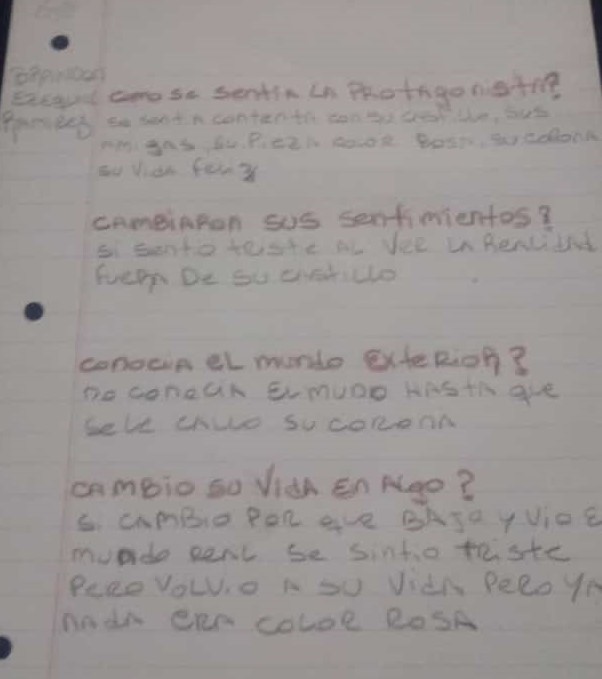 Ezequiel como se sentia LA PROtAgonistA?
Ramirez se sentia contenta con su castillo, sus
amigas, su Pieza color Rosa, su corona
su vida feliz
CAMBIARON SUS sentimientos?
si sentio triste AL Ver LA ReaLidad
fuera De su castillo
conocia eL mundo ExteRioR?
no conocia EL MUDO HASTA que
sele callo su corona
CAMBIO su VidA En ALgo?
si CAMBIO POR que BAJO y ViO E
mundo reaL se sintio triste
PERO VOLVIO A SU VidA PeRO YA
nada era COLOR ROSA